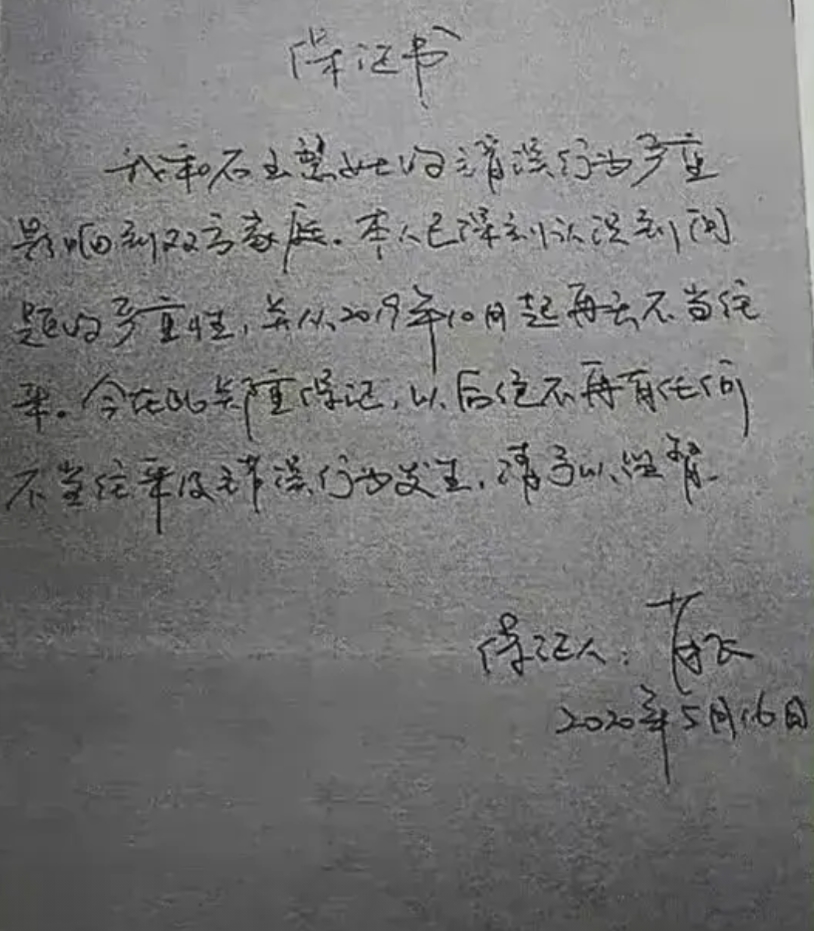 保证书
我和石 的错误行为严重
影响到双方家庭。本人已深刻认识到问
题的严重性，并从2019年10月起再无不当往
来。今在此郑重保证，以后绝不再有任何
不当往来及错误行为发生，请予以监督。
保证人：
2020年5月16日